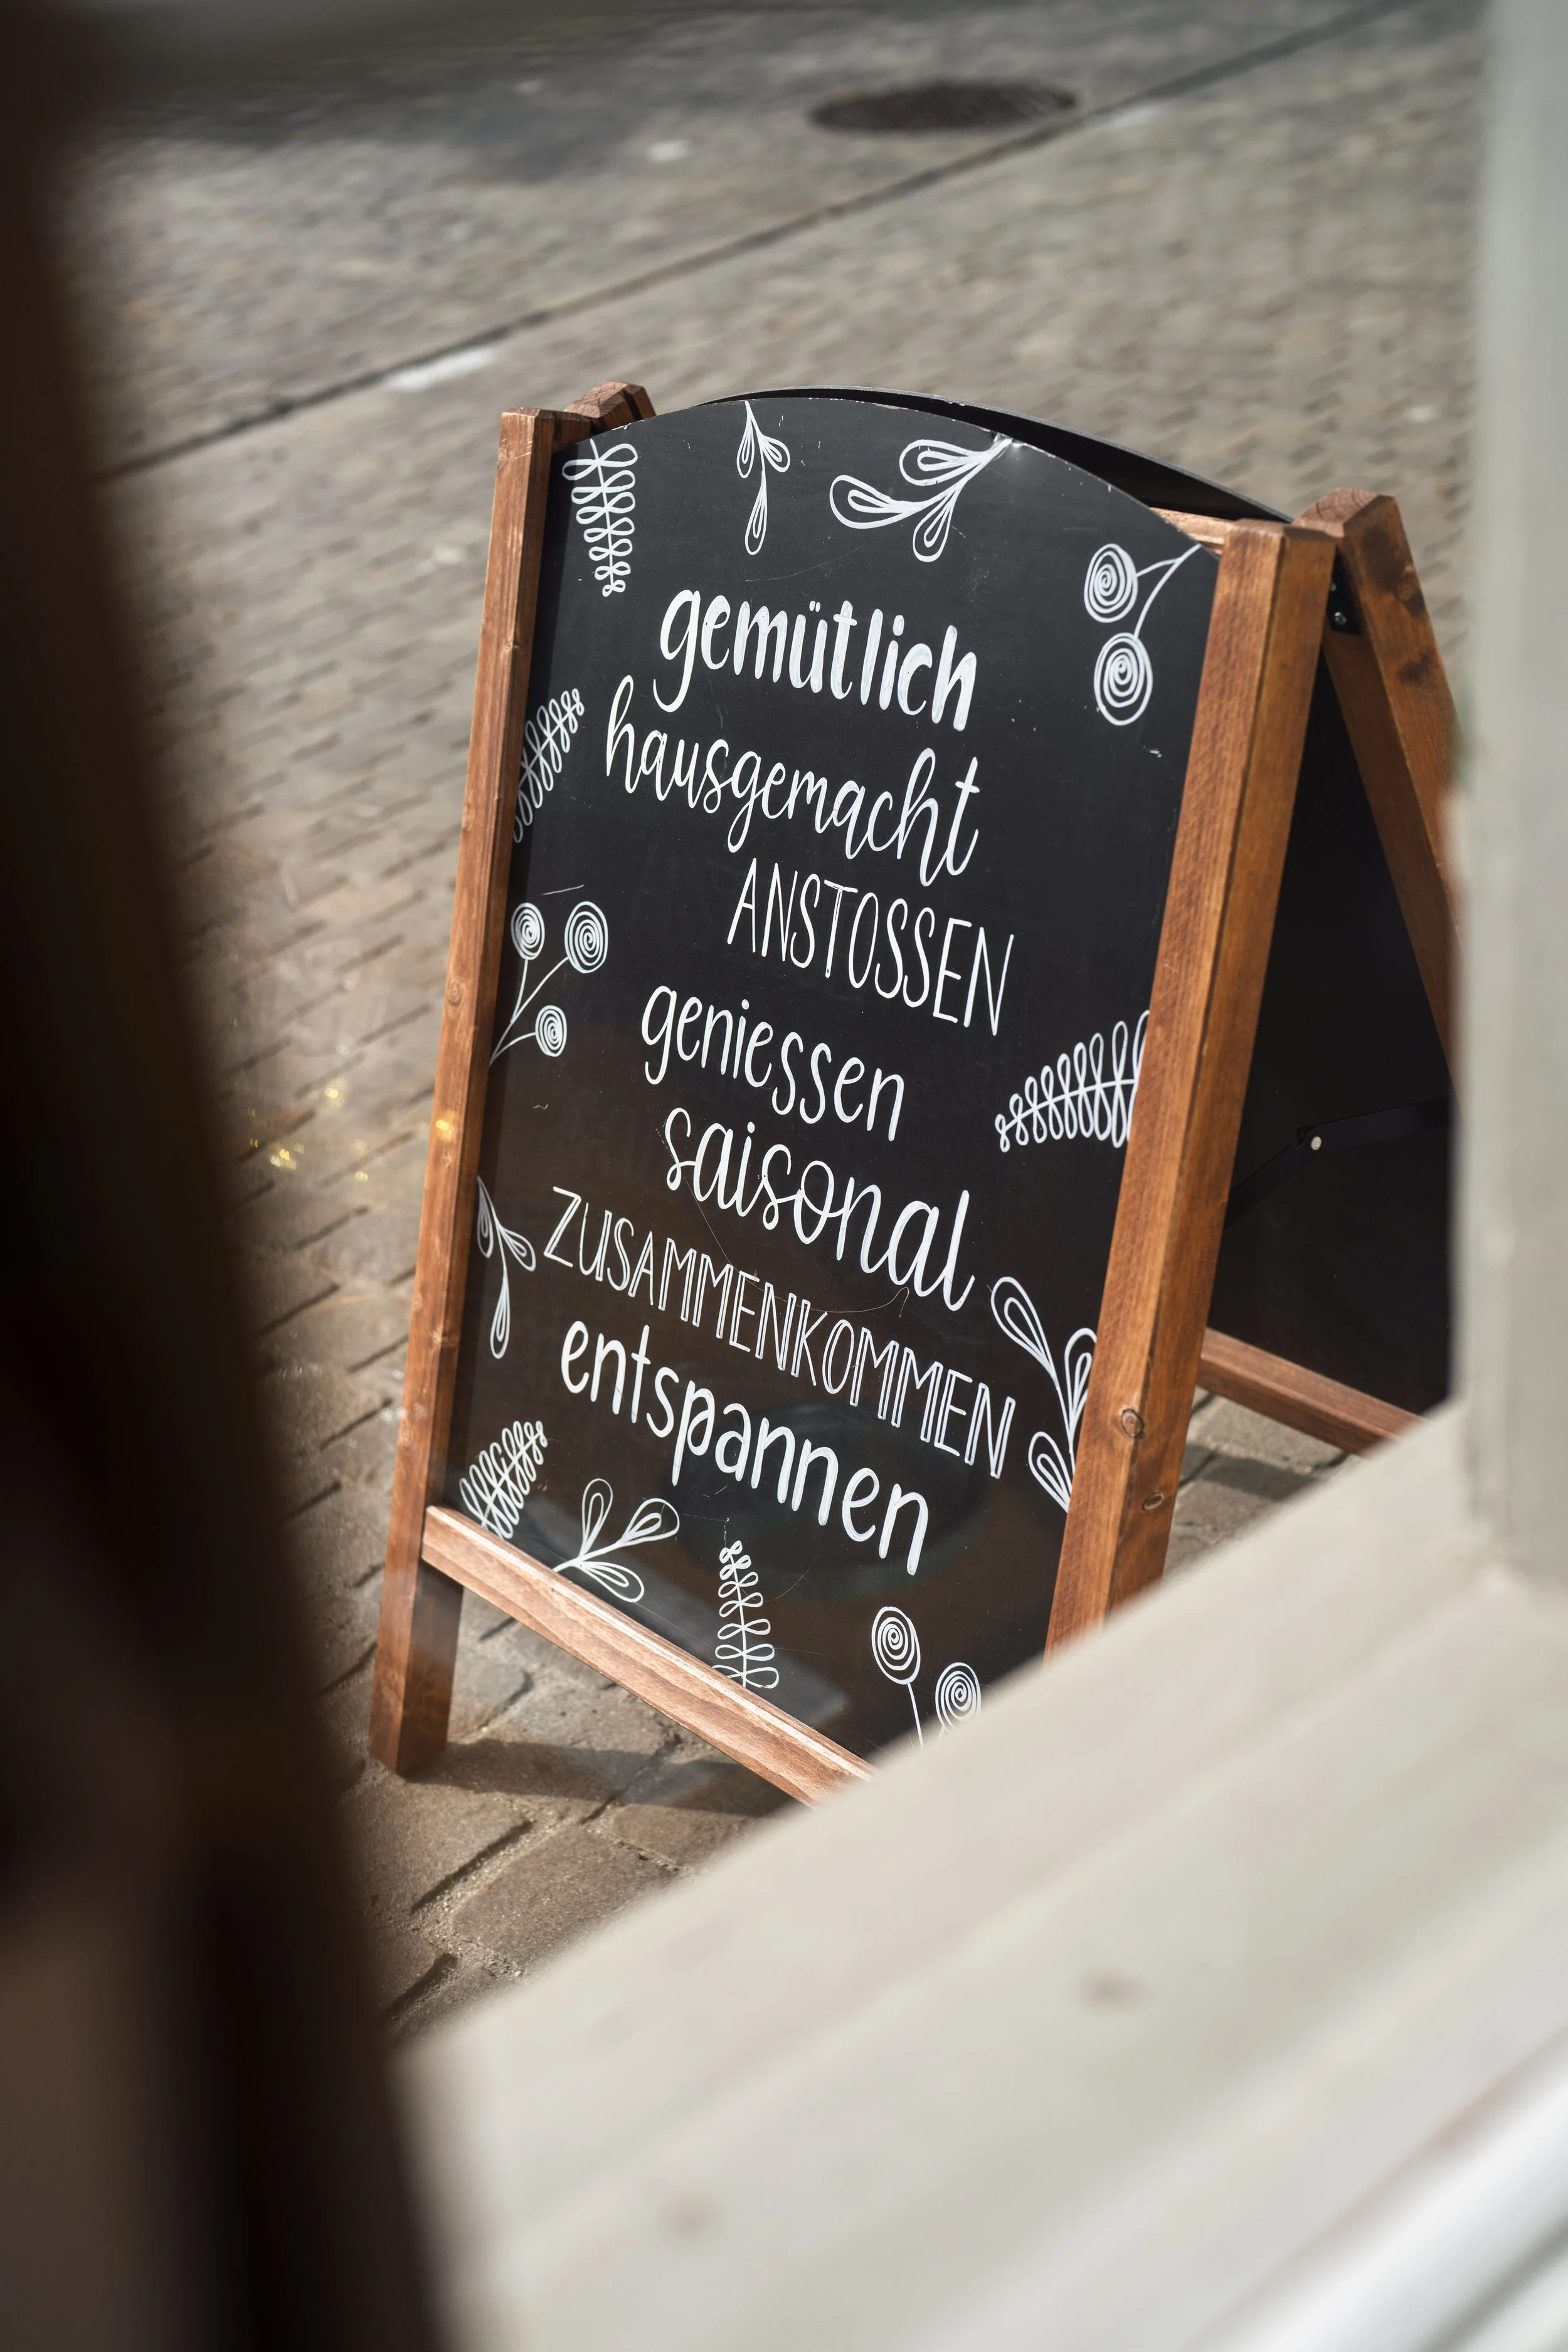 gemütlich
hausgemacht
ANSTOSSEN
geniessen
saisonal
ZUSAMMENKOMMEN
entspannen